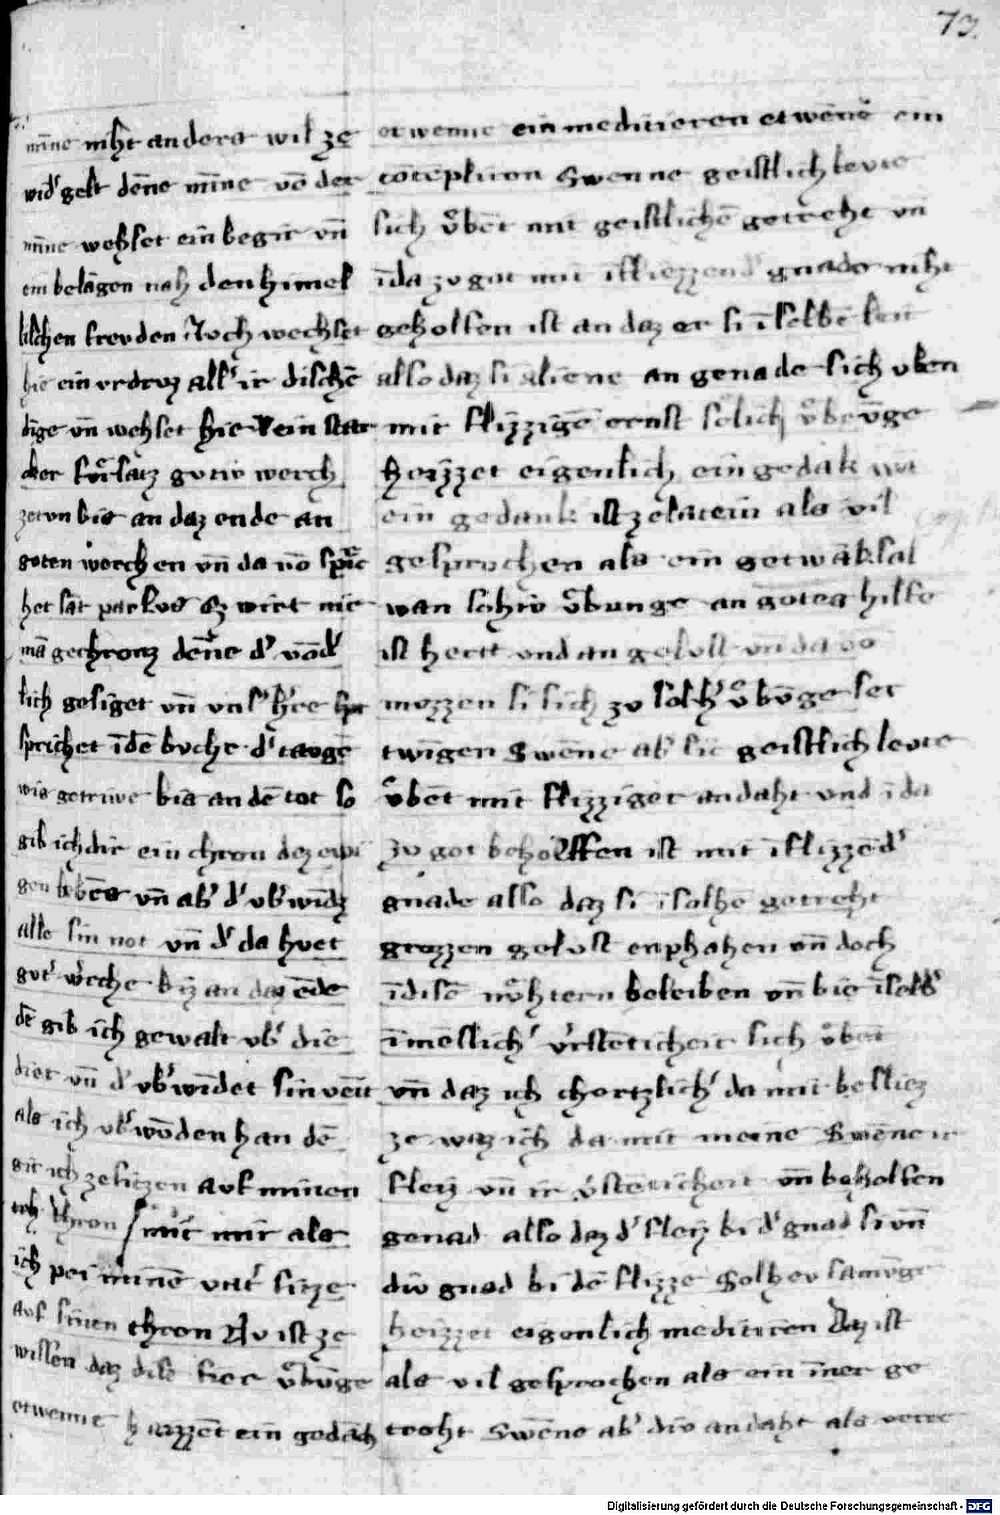 73.
mīne niht anders wil ze
wid' gelt dēne mīne vō der
mīne wehset ein begir vn̄
ein belāgen nah den himel
lischen frevden Noch wechset
hie ein vrdrvz all' ir dischē
dīge vn̄ wehset hie ein stat
ker fvͦrsatz gvtiv werch
ze tvn bis an daz ende an
goten werchen vn̄ da vō sp̄c
het sāt pavlvs Ez wirt nie
mā gechronz dēne d' vōd'
lich gesiget vn̄ vns' h're
sprichet ī dē bvche d' tavgē
wis getriwe bis an dē tot so
gib ich dir ein chron dez ewi
gen lebēs vn̄ ab' d' vb'wīdz
alle sin not vn̄ d' da hvet
gvt' w'che biz an daz ēde
dē gib ich gewalt vb' die
diet vn̄ d' vb'wīdet sin veīt
als ich vb'wōden han dē
gib ich ze sitzen avf minen
thron mit mir als
ich pei minē vat' sitze
avf sinen thron Nv ist ze
wissen daz dise vbvͤge
etwenne haizzēt ein gedāch
etwenne ein meditieren etwēne ein
cōtēpliron Swenne geistlich levte
sich vͤbēt mit geistlichē getreht vn̄
ī da zv got mit īfliezzend' gnade niht
geholfen ist an daz er si ī selbē leit
also daz si aliene an genade sich vben
mit flizzigē ernst solich vͤbvͤge
heizzet eigenlich ein gedāk wā
ein gedank ist ze latein als vil
gesprochen als ein getwāksal
wan solhiv vͤbunge an gotes hilfe
ist hertt vnd an gelvst vn̄ da vō
mvzzen si sich zv solh' vͤbvͤge ser
twīgen Swēne ab' sie geistlich levte
vͤbēt mit flizziger andaht vnd ī da
zv got beholffen ist mit īflizzēd'
gnade also daz si ī solhē getreht
grozzen gelvst enphahen vn̄ doch
ī disē nvͤhtern beleiben vn̄ bie ī selb'
ī mēslich' v'stēticheit sich vͤbēt
vn̄ daz ich chortzlich' da mit besliez
ze waz ich da mit meine Swēne ir
fleiz vn̄ ir v'stēticheit vn̄ beholfen
genad also daz d' fleiz bi d' gnad si vn̄
div gnad bi dē flizze Solhev samvͤge
heizzet eigenlich meditiren Daz ist
als vil gesprochen als ein īner ge
treht Swēne ab' div andaht als verre
Digitalisierung gefördert durch die Deutsche Forschungsgemeinschaft - DFG